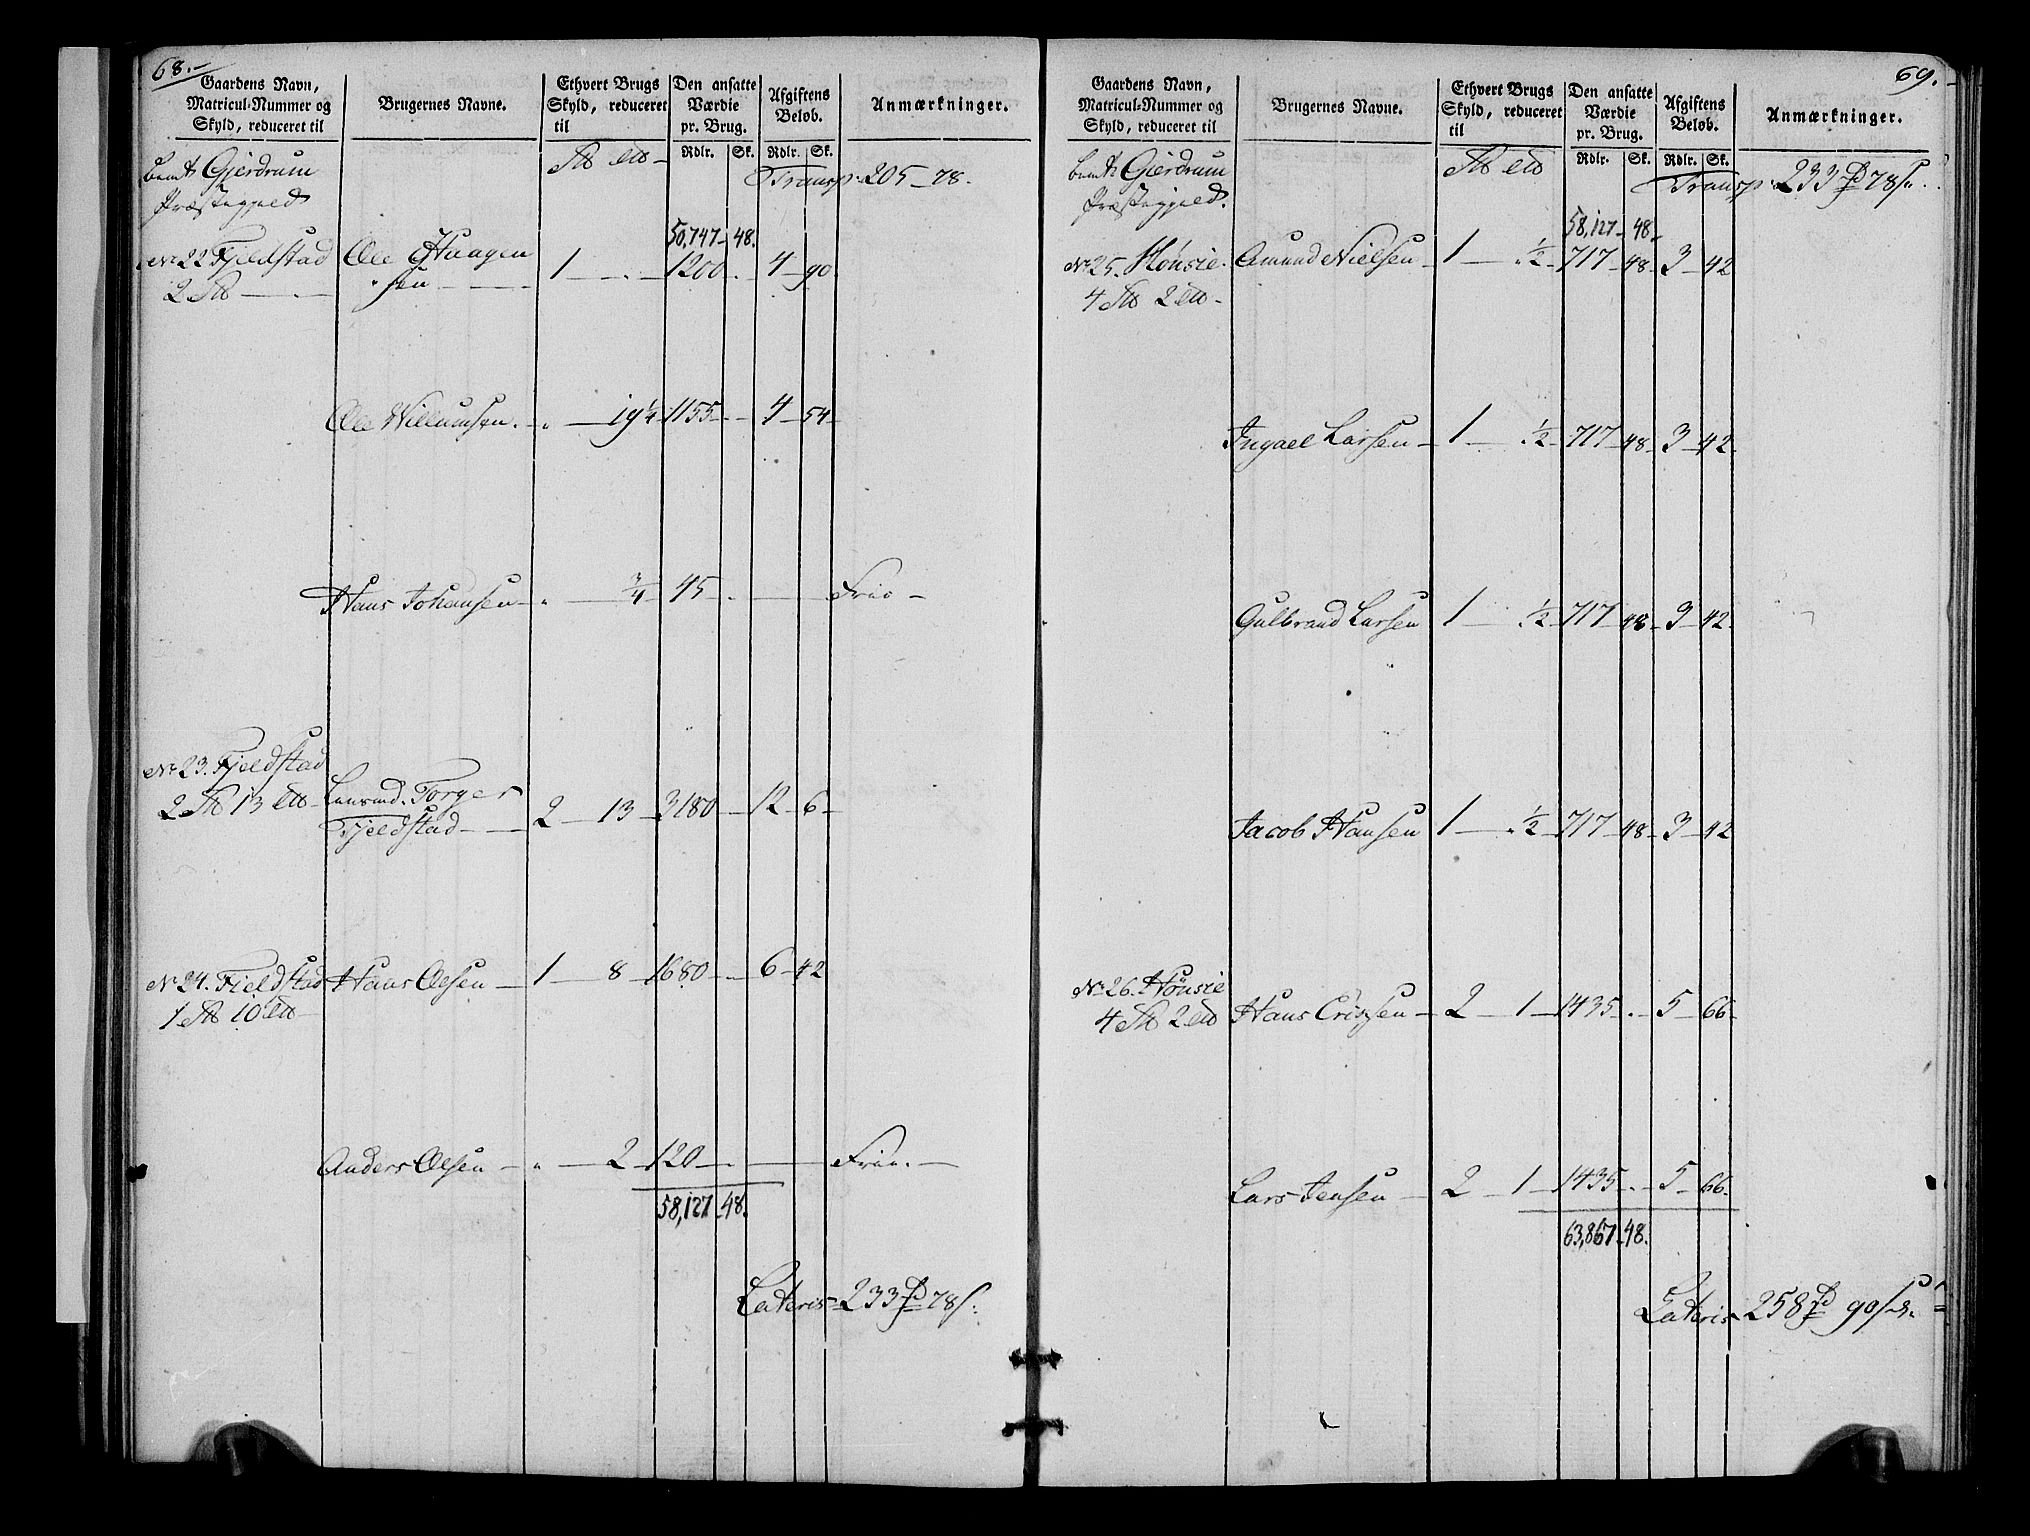 68.
Gaardens Navn, Matricul-Nummer og Skyld, reduceret til
Brugernes Navne.
Ethvert Brugs Skyld, reduceret til
Den ansatte Værdie pr. Brug.
Afgiftens Beløb.
Anmærkninger.
Rdlr. Sk. Rdlr. Sk.
Gjerdrum
Præstegjeld
Transp: 205 - 78.
50,747 - 48.
No 22 Fjeldstad Ole Haagen
sen 1 1200 4 - 90
2
Ole Willumsen 19 1/4 1155 4 54
Hans Johansen 3/4 45 Frie
No 23. Fjeldstad
2 13 Lensmd. Torger
Fjeldstad 2 13 3180 12 6
No 24. Fieldstad Hans Olsen 1 8 1680 6 42
1 10
Anders Olsen 2 120 Frie.
58,127 48.
Lateris 233 78
69.
Gaardens Navn, Matricul-Nummer og Skyld, reduceret til
Brugernes Navne.
Ethvert Brugs Skyld, reduceret til
Den ansatte Værdie pr. Brug.
Afgiftens Beløb.
Anmærkninger.
Rdlr. Sk. Rdlr. Sk.
Gierdrum
Præstegjeld.
Transp: 233 78
58,127 48
No 25. Hønsie Amund Nielsen 1 1/2 717 48 3 42
4 2
Ingael Larsen 1 1/2 717 48 3 42
Gulbrand Larsen 1 1/2 717 48 3 42
Jacob Hansen 1 1/2 717 48 3 42
No 26. Hønsie
4 2 Hans 2 1 1435 5 66
Lars Jensen 2 1 1435 5 66
63,867 48.
Lateris 258 90